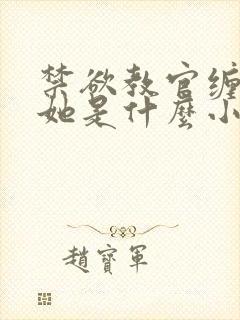 禁欲教官缠
她是什麼小
趙寶軍